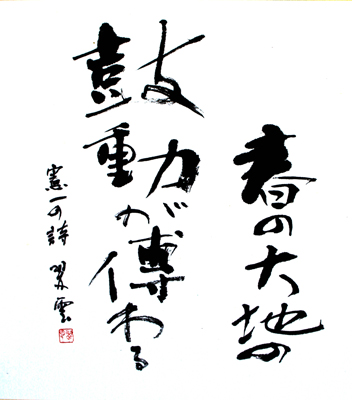 春の大地の
鼓動が傳わる
憲一の詩 翠雲